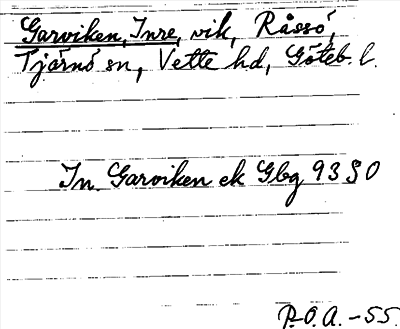 Garviken, Inre, vik, Råssö,
Tjärnö sn, Vette hd, Göteb. l.
In. Garviken ek Gbg 93 SO
P.O.A. - 55.